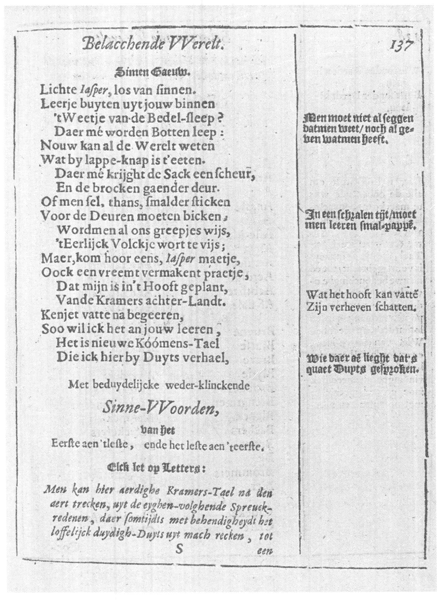 Belacchende VVerelt.
137
Simen Gaeuw.
Lichte Iasper, los van sinnen.
Leerje buyten uyt jouw binnen
'tWeetje van de Bedel-sleep?
Daer mé worden Botten leep:
Nouw kan al de Werelt weten
Wat by lappe-knap is t'eeten.
Daer mé krijght de Sack een scheur,
En de brocken gaender deur.
Of men sel, thans, smalder sticken
Voor de Deuren moeten bicken.
Wordmen al ons greepjes wijs,
'tEerlijck Volckje wort te vijs;
Maer, kom hoor eens, Iasper maetje,
Oock een vreemt vermakent praetje,
Dat mijn is in't Hooft geplant,
Vande Kramers achter-Landt.
Kenjet vatte na begeeren,
Soo wil ick het an jouw leeren,
Het is nieuwe Kóómens-Tael
Die ick hier by Duyts verhael,
Men moet niet al seggen
datmen weet/ noch al ge-
ven watmen heeft.
In een schralen tijt/moet
men leeren smal-pappē.
Wat het hooft kan vattē
Zijn verheven schatten.
Wie daer oē lieght dat's
quaet Duyts gesproken.
Met beduydelijcke weder-klinckende
Sinne-VVoorden,
van het
Eerste aen 'tleste, ende het leste aen 'teerste.
Elck let op Letters:
Men kan hier aerdighe Kramers-Tael na den
aert trecken, uyt de eyghen-volghende Spreuck-
redenen, daer somtijdts met behendigheydt het
loffelijck duydigh-Duyts uyt mach recken, tot
S
een